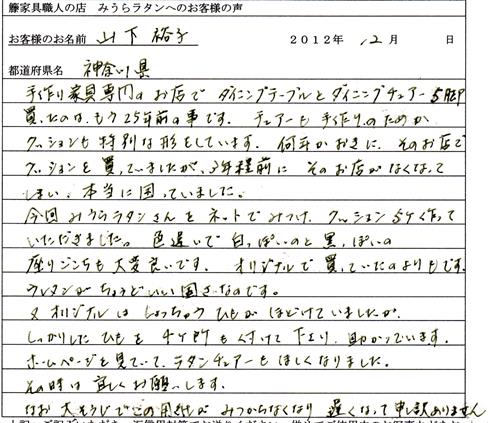 籐家具職人の店 みうらラタンへのお客様の声
お客様のお名前 山下 裕子 2012年 12月 日
都道府県名 神奈川県
手作り家具専門のお店でダイニングテーブルとダイニングチェアー5脚
買ったのは、もう25年前の事です。チェアーも手作りのためか
クッションも特別な形をしています。何年かおきに、そのお店で
クッションを買っていましたが、3年程前に そのお店がなくなって
しまい、本当に困っていました。
今回みうらラタンさんをネットでみつけ、クッション5ケ作って
いただきました。色違いで白っぽいのと黒っぽいの
座りごこちも大変良いです。オリジナルで買っていたのよりもです。
ウレタンがちょうどいい固さなのです。
又オリジナルはしょっちゅうひもがほどけていましたが、
しっかりしたひもを4ヶ所も付けて下さり、助かっています。
ホームページを見ていて、ラタンチェアーもほしくなりました。
その時は宜しくお願いします。
なお大そうじでこの用紙がみつからなくなり 遅くなって申し訳ありません